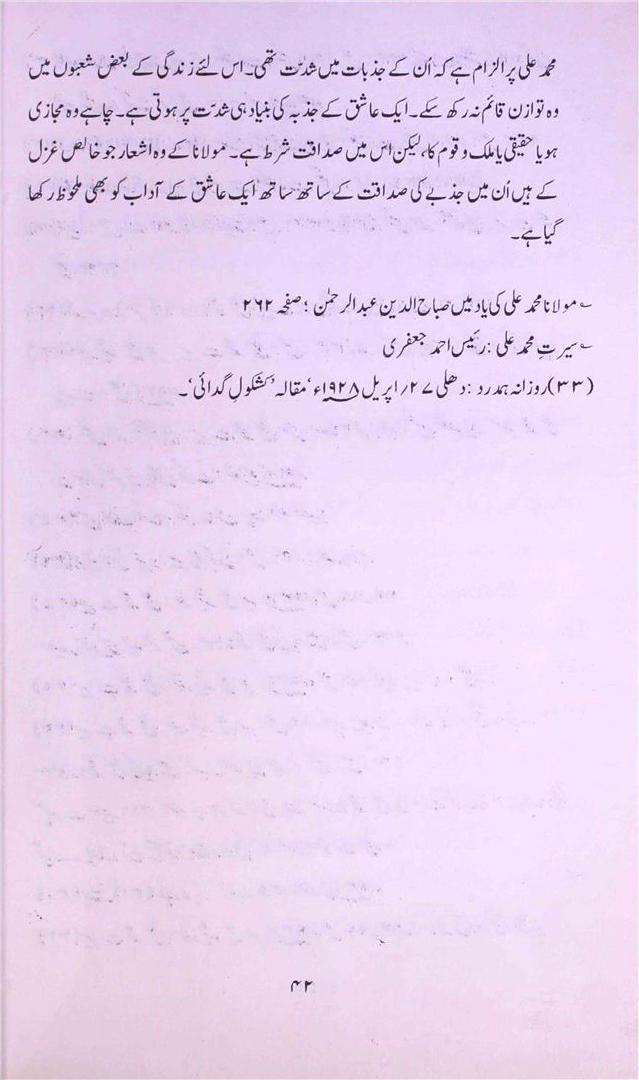 محمد علی پر الزام ہے کہ اُن کے جذبات میں شدّت تھی۔ اس لئے زندگی کے بعض شعبوں میں
وہ توازن قائم نہ رکھ سکے۔ ایک عاشق کے جذبہ کی بنیاد ہی شدّت پر ہوتی ہے۔ چاہے وہ مجازی
ہو یا حقیقی یا ملک و قوم کا، لیکن اس میں صداقت شرط ہے۔ مولانا کے وہ اشعار جو خالص غزل
کے ہیں اُن میں جذبے کی صداقت کے ساتھ ساتھ ایک عاشق کے آداب کو بھی ملحوظ رکھا
گیا ہے۔
؎ مولانا محمد علی کی یاد میں صباح الدین عبدالرحمٰن ؛ صفحہ ۲۶۲
؎ سیرتِ محمد علی : رئیس احمد جعفری
(۳۳) روزانہ ہمدرد : دھلی ۲۷؍ اپریل ۱۹۲۸ء ‘مقالہ ’کشکولِ گدائی‘۔
۴۲